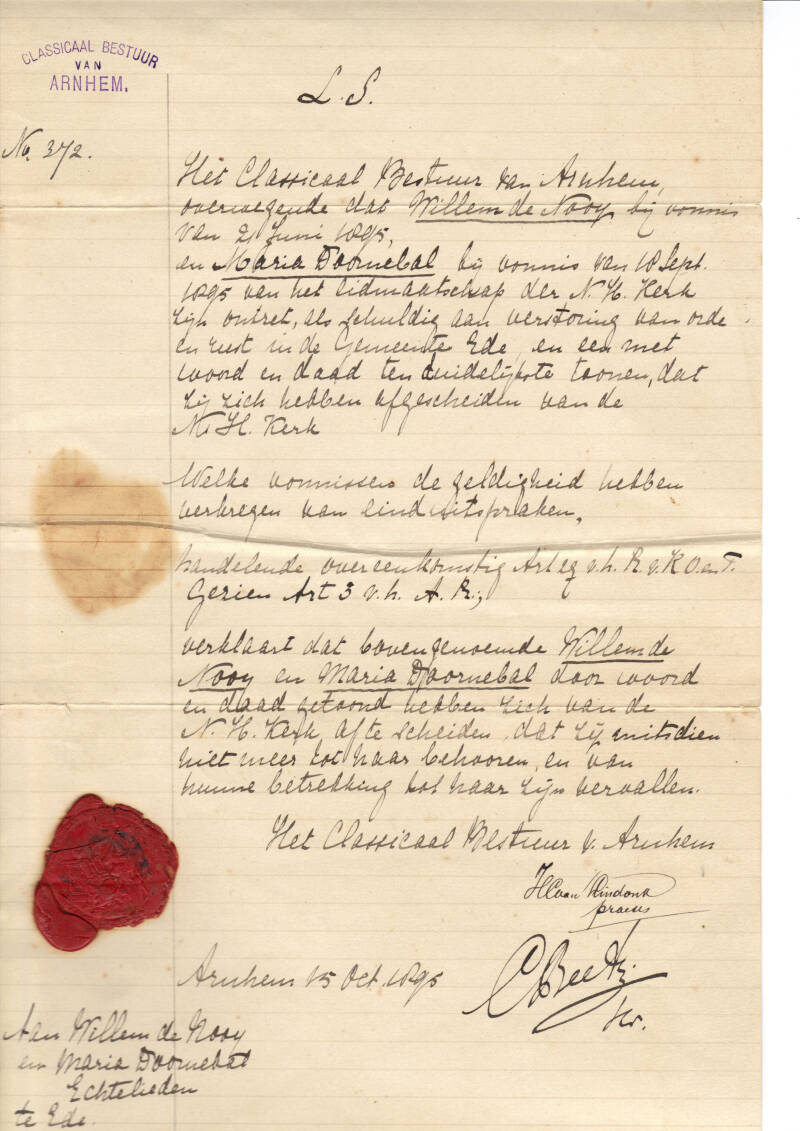 CLASSICAAL BESTUUR
VAN
ARNHEM.
L. S.
No. 372.
Het Classicaal Bestuur van Arnhem,
overwegende dat Willem de Nooy bij vonnis
van 21 Juni 1895,
en Maria Doornebal bij vonnis van 18 Sept.
1895 van het lidmaatschap der N. H. Kerk
zijn ontzet, als schuldig aan verstoring van orde
en rust in de Gemeente Ede, en een met
woord en daad ten duidelijkste toonen, dat
zij zich hebben afgescheiden van de
N. H. Kerk
Welke vonnissen de geldigheid hebben
verkregen van einduitspraken,
handelende overeenkomstig Art v. h. R. v. K O. en T.
Gezien Art 3 v. h. A. R.;
verklaart dat bovengenoemde Willem de
Nooy en Maria Doornebal door woord
en daad getoond hebben zich van de
N. H. Kerk af te scheiden, dat zij mitsdien
niet meer tot haar behooren, en van
hunne betrekking tot haar zijn vervallen.
Het Classicaal Bestuur v. Arnhem
praeses
Arnhem 15 Oct. 1895
Aan Willem de Nooy
en Maria Doornebal
Echtelieden
te Ede.